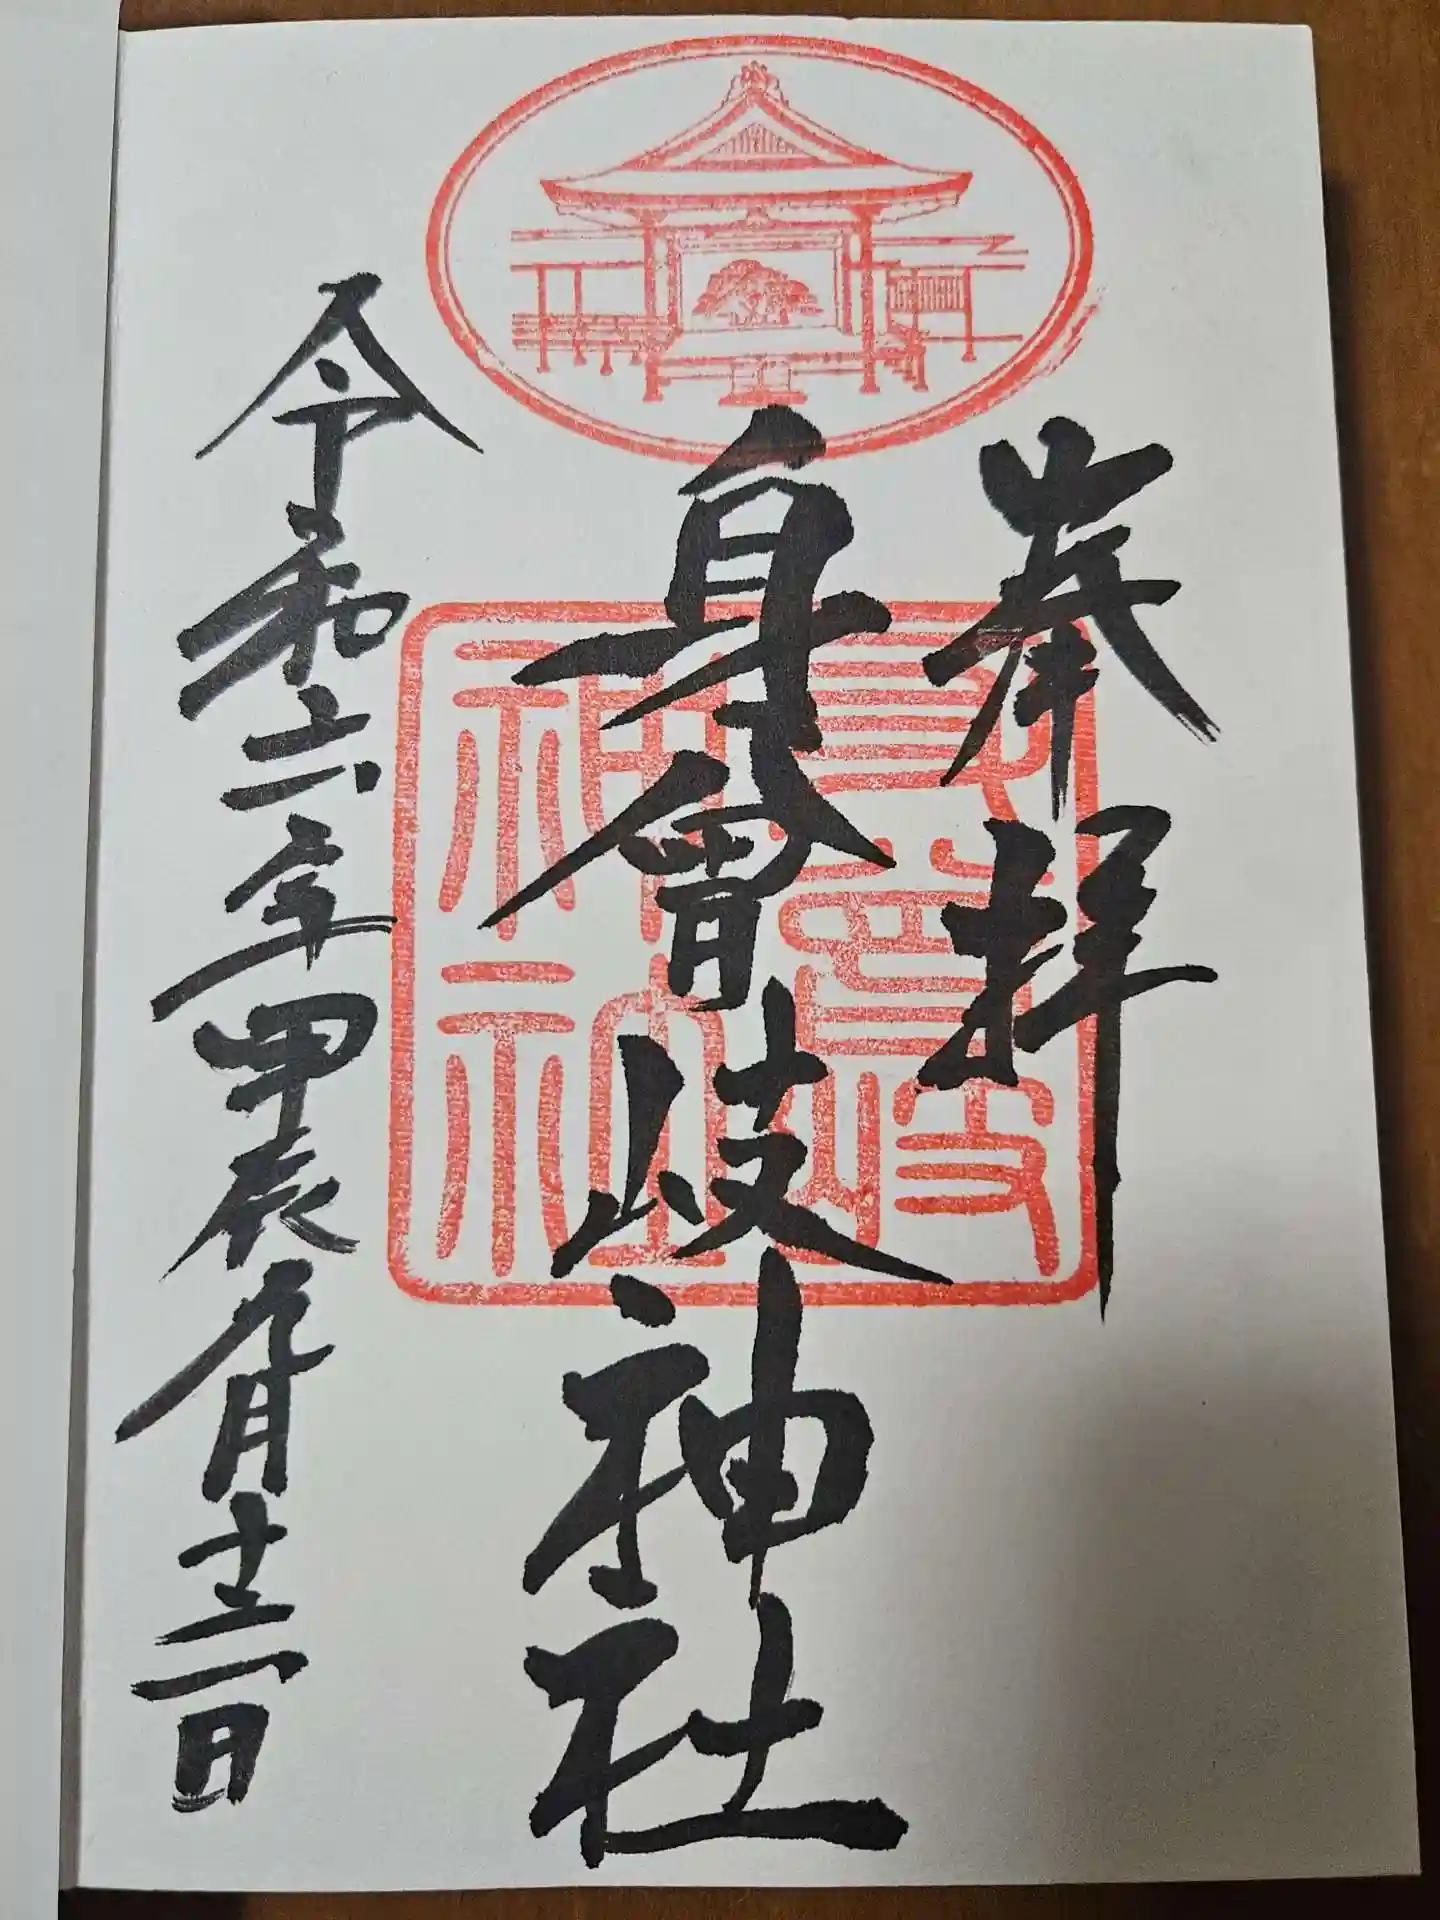 奉拝
身曾岐神社
令和六年甲辰九月十三日
身曾岐
神社